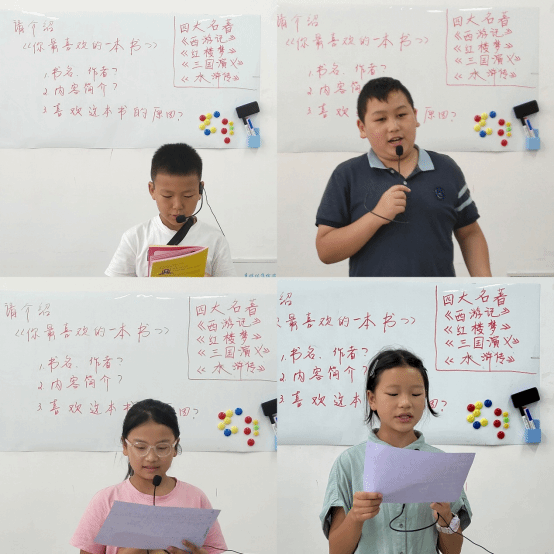 请介绍
《你最喜欢的一本书》
1.书名、作者?
2.内容简介?
3.喜欢这本书的原因?
四大名著
《西游记》
《红楼梦》
《三国演义》
《水浒传》
《你最喜欢的一本书》
1.书名、作者?
2.内容简介?
3.喜
原因?
四大名著
《西游记》
《红楼梦》
《三国演义》
《水浒传》
请介绍
《你最喜欢的一本书》
1.书名、作者?
2.内容简介?
3.喜欢这本
原因?
四大名著
《西游记》
《红楼梦》
《三国演义》
《水浒传》
绍
最喜欢的一本书》
1.书名、作者?
2.内容简介?
3.喜欢这本
四大名著
《西游记》
《红楼梦》
《三国演义》
《水浒传》